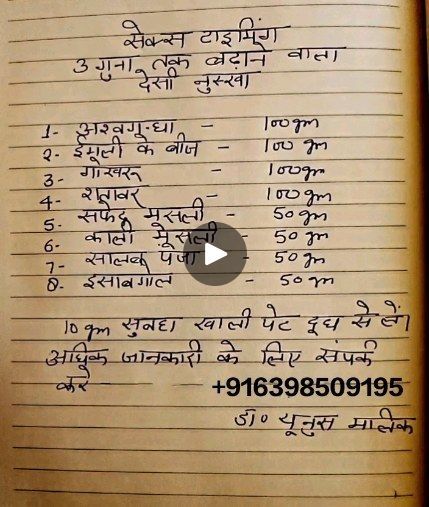 सेक्स टाइमिंग
3 गुना तक बढ़ाने वाला
देसी नुस्खा
1- अश्वगन्धा - 100 gm
2- ईमली के बीज - 100 gm
3- गोखरू - 100gm
4- शतावर - 100 gm
5- सफेद मूसली - 50 gm
6- काली मूसली - 50 gm
7- सालब पंजा - 50 gm
8- इसाबगोल - 50 gm
10 gm सुबह खाली पेट दूध से लें।
अधिक जानकारी के लिए संपर्क
करे - +916398509195
डा० यूनुस मालिक